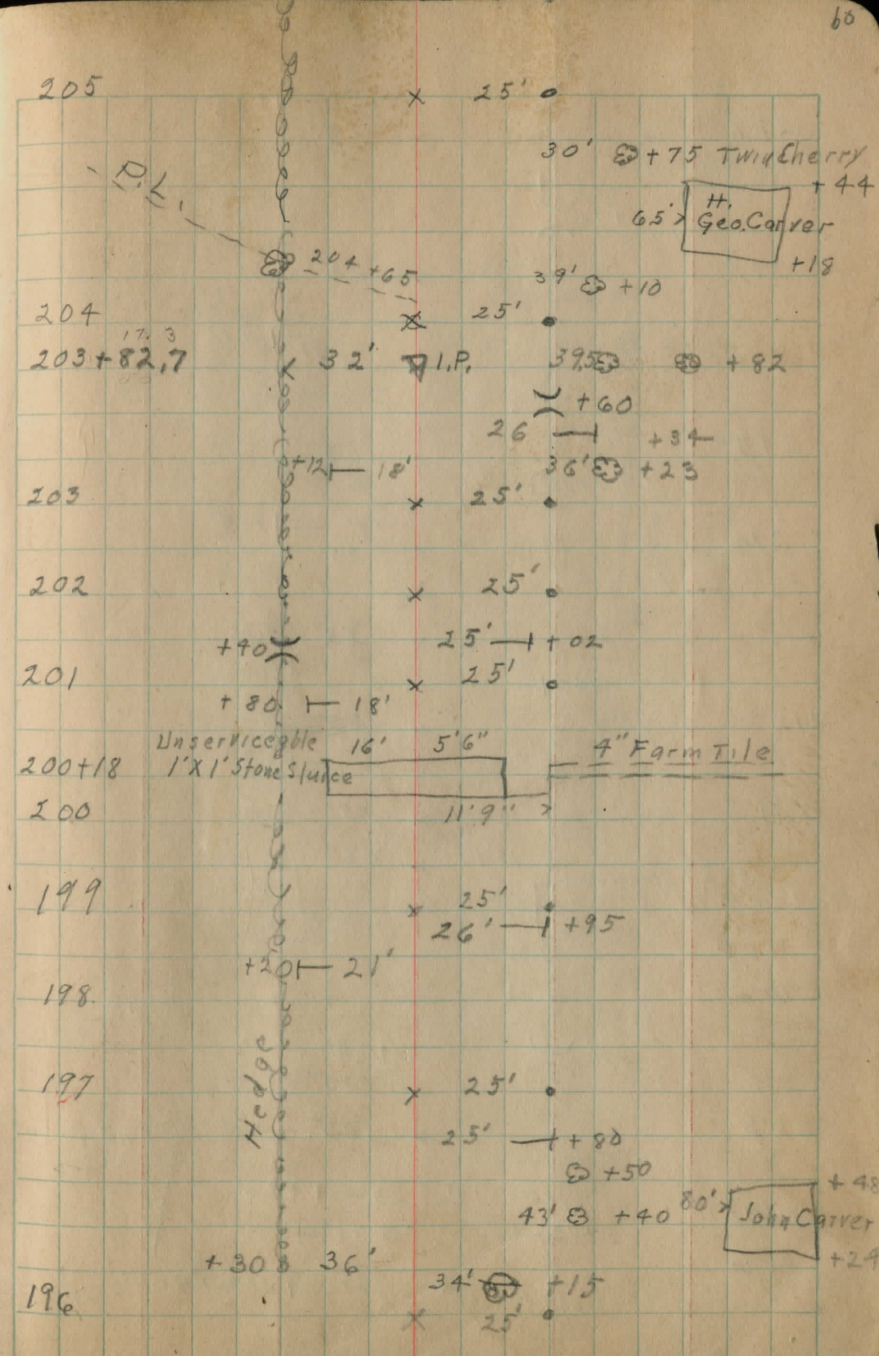 60
205 × 25'
30' +75 Twin Cherry
+44
P.L.
65' H.
Geo. Carver
+18
204 +65
39' +10
204 × 25'
17.3
203+82.7 × 32' I.P. 39.5 +82
+60
26 +34
+12 18' 36' +23
203 × 25'
202 × 25'
+40 25' +02
201 × 25'
+80 18'
Unserviceable 16' 5'6" 4" Farm Tile
200+18 1'X1' Stone Sluice
200 11'9"
199 × 25'
26' +95
+20 21'
198
Hedge
197 × 25'
25' +80
+50
+48
43' +40 80' John Carver
+30 36' +24
34' +15
196 × 25'